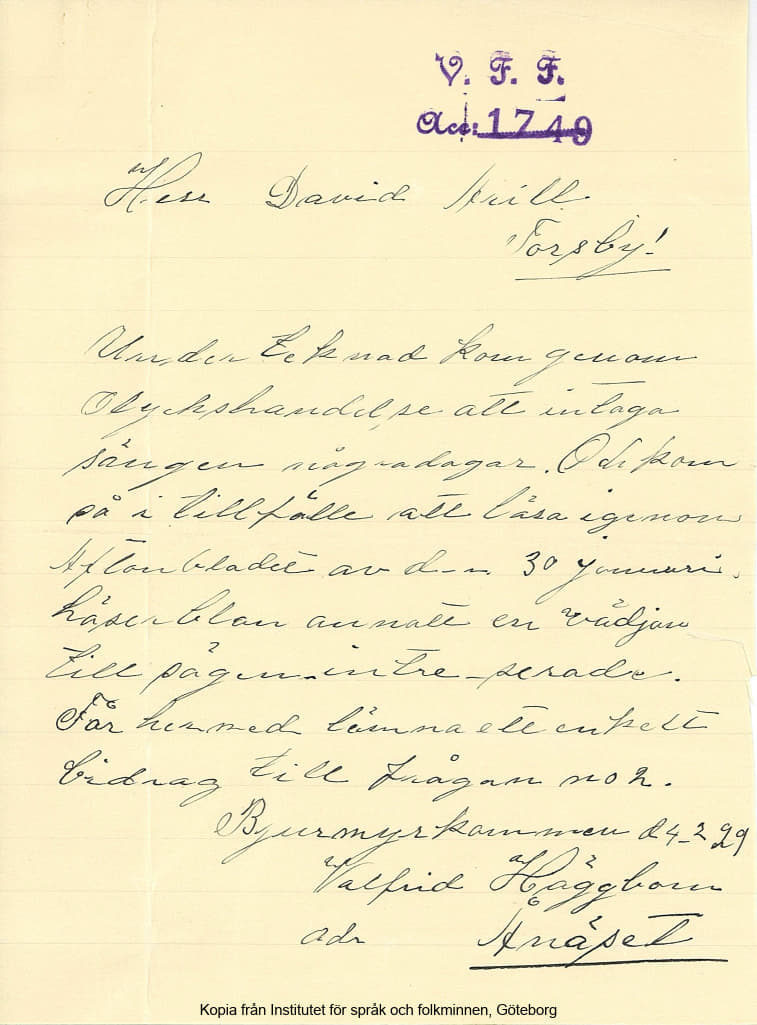 V. F. F.
Acc: 1749
Herr David Arill
Forsby!
Undertecknad kom genom
Olyckshandelse att intaga
sängen någradagar. Och kom
så i tillfälle att läsa igenom
Aftonbladet av den 30 januari.
läser blan annatt en vädjan
till sägen-intre-serade.
Får hermed lämna ett enkelt
bidrag till frågan no 2.
Bjurmyrkammen d 4-2 29
Valfrid Häggbom
adr Ånäset
Kopia från Institutet för språk och folkminnen, Göteborg